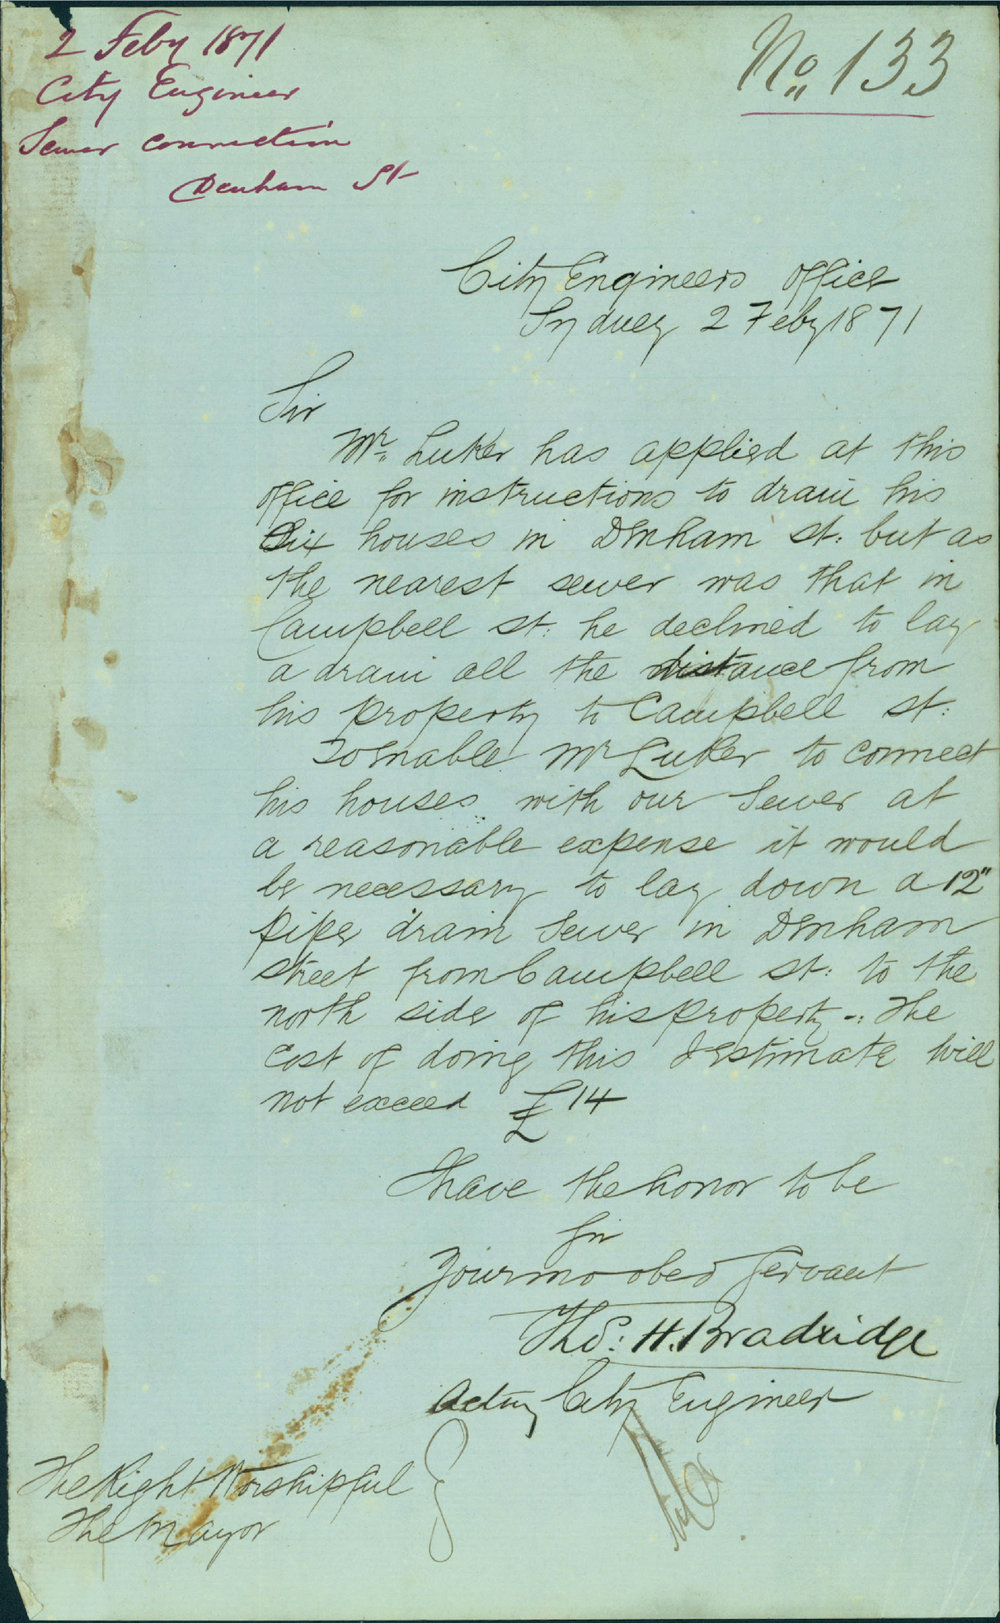 2 Feby 1871
City Engineer
Sewer connection
Denham St
No 133
City Engineers office
Sydney 2 Feby 1871
Sir
Mr. Luker has applied at this
office for instructions to drain his
Six houses in Denham st: but as
the nearest sewer was that in
Campbell st: he declined to lay
a drain all the distance from
his property to Campbell st:
To enable Mr Luker to connect
his houses with our Sewer at
a reasonable expense it would
be necessary to lay down a 12"
pipe drain Sewer in Denham
street from Campbell st: to the
north side of his property -: The
cost of doing this I estimate will
not exceed £14
I have the honor to be
Sir
Your mo obed Servant
Thos: H. Bradridge
Acting City Engineer
The Right Worshipful
The Mayor